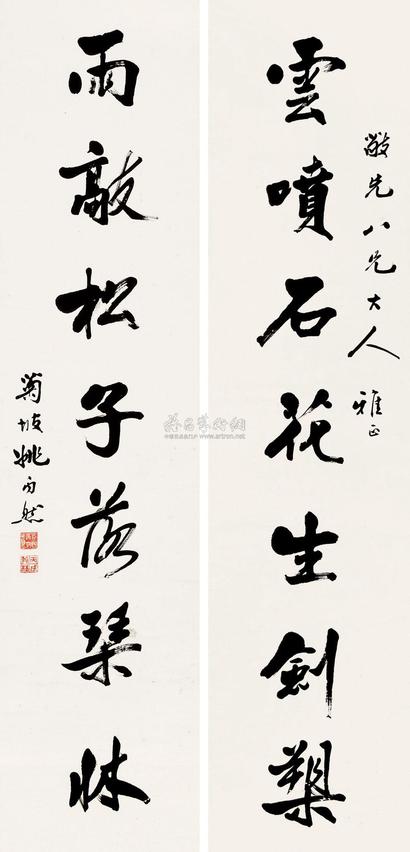 敬先八兄大人
雅正
雲噴石花生劍槊
雨敲松子落琴牀
菊坡姚
雅昌藝術網
www.artron.net